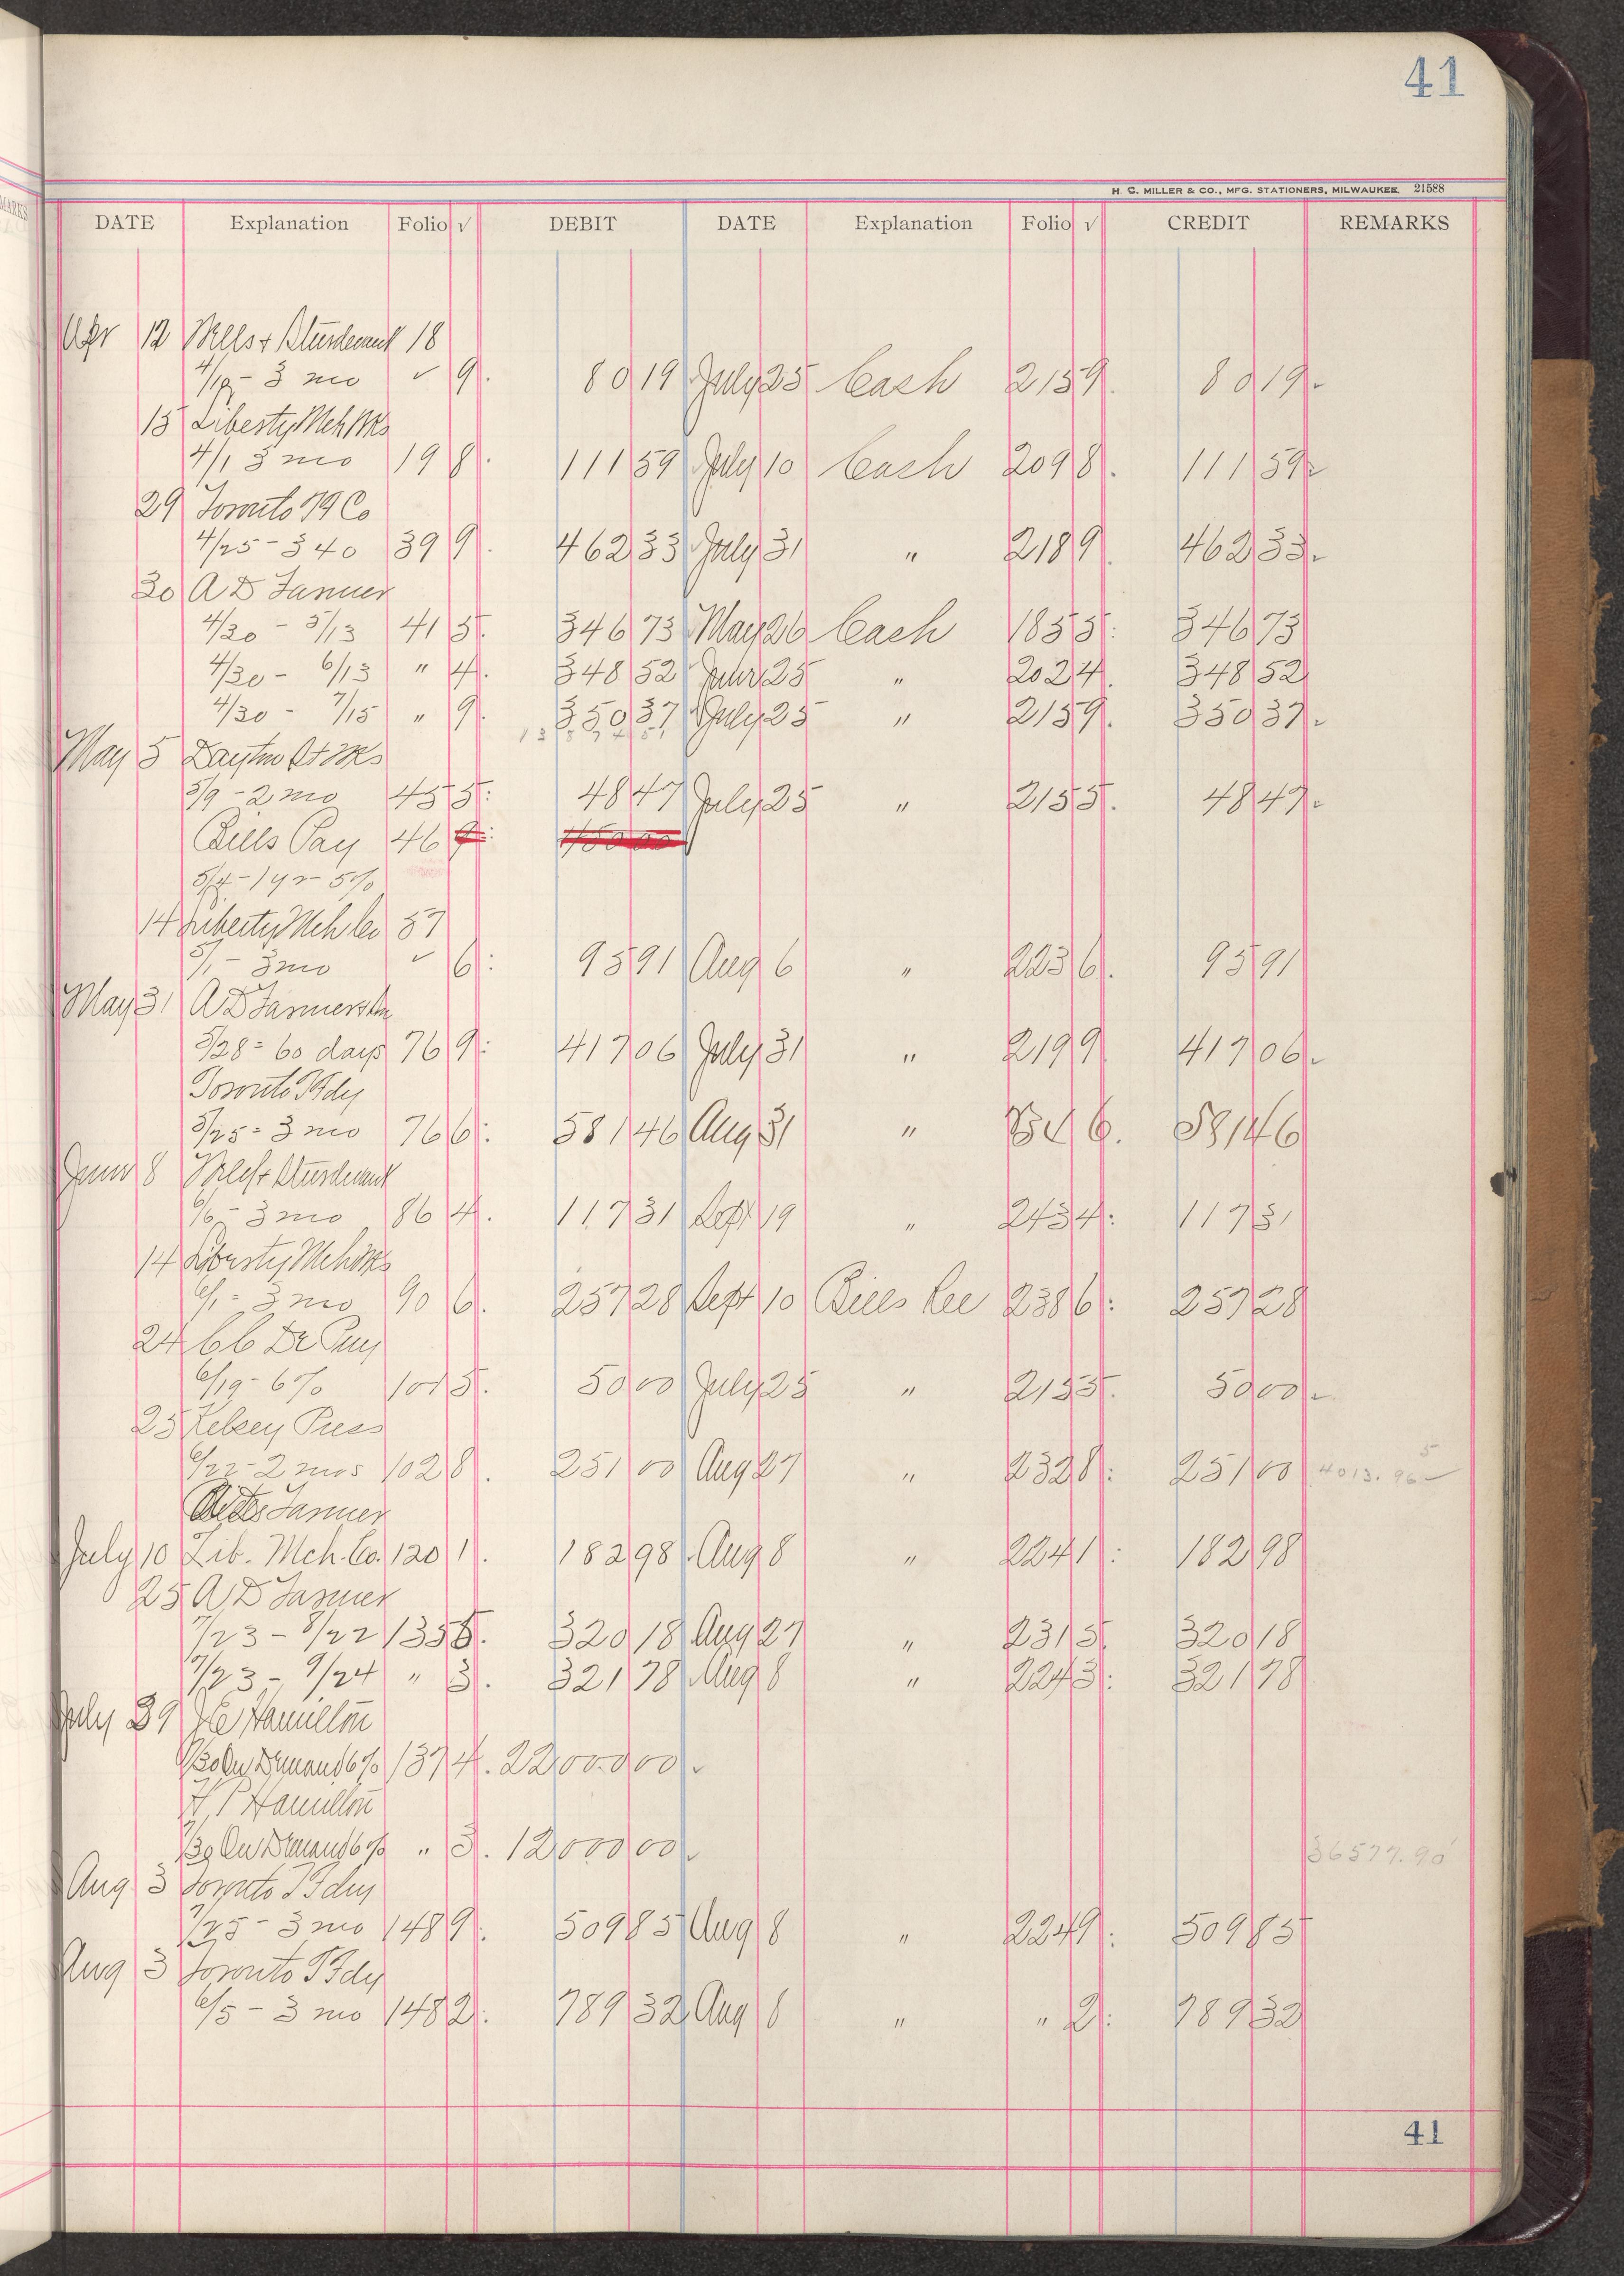 41
H. C. MILLER & CO., MFG. STATIONERS, MILWAUKEE 21588
DATE Explanation Folio √ DEBIT DATE Explanation Folio √ CREDIT REMARKS
Apr 12 Wells & Sturdevant 18
4/12 - 3 mo ✓ 9 80 19 July 25 Cash 215 9 80 19
15 Liberty Mch Wks
4/1 3 mo 19 8 111 59 July 10 Cash 209 8 111 59
29 Toronto T9 Co
4/25 - 3 40 39 9 462 33 July 31 " 218 9 462 33
30 A D Farmer
4/30 - 5/13 41 5 346 73 May 26 Cash 185 5 346 73
4/30 - 6/13 " 4 348 52 June 25 " 202 4 348 52
4/30 - 7/15 " 9 350 37 July 25 " 215 9 350 37
May 5 Dayton St Wks
5/9 - 2 mo 45 5 48 47 July 25 " 215 5 48 47
Bills Pay 46
5/4 - 1 yr 5%
14 Liberty Mch Co 57
5/1 - 3 mo ✓ 6 95 91 Aug 6 " 223 6 95 91
May 31 A D Farmer & Son
5/28 - 60 days 76 9 417 06 July 31 " 219 9 417 06
Toronto T Fdy
5/25 - 3 mo 76 6 581 46 Aug 31 " 6 581 46
June 8 Wells & Sturdevant
6/6 - 3 mo 86 4 117 31 Sept 19 " 243 4 117 31
14 Liberty Mch Wks
6/1 - 3 mo 90 6 257 28 Sept 10 Bills Rec 238 6 257 28
24 C C De Puy
6/19 - 6% 101 5 50 00 July 25 " 215 5 50 00
25 Kelsey Press
6/22 - 2 mos 102 8 251 00 Aug 27 " 232 8 251 00 4013.96 5
Farmer
July 10 Lib. Mch. Co. 120 1 182 98 Aug 8 " 224 1 182 98
25 A D Farmer
7/23 - 8/22 135 5 320 18 Aug 27 " 231 5 320 18
7/23 - 9/24 " 3 321 78 Aug 8 " 224 3 321 78
July 39 J E Hamilton
7/30 On Demand 6% 137 4 22000.00
H P Hamilton
7/30 On Demand 6% " 3 12000 00 36577.90
Aug 3 Toronto T Fdry
7/25 - 3 mo 148 9 509 85 Aug 8 " 224 9 509 85
Aug 3 Toronto T Fdy
6/5 - 3 mo 148 2 789 32 Aug 8 " " 2 789 32
41